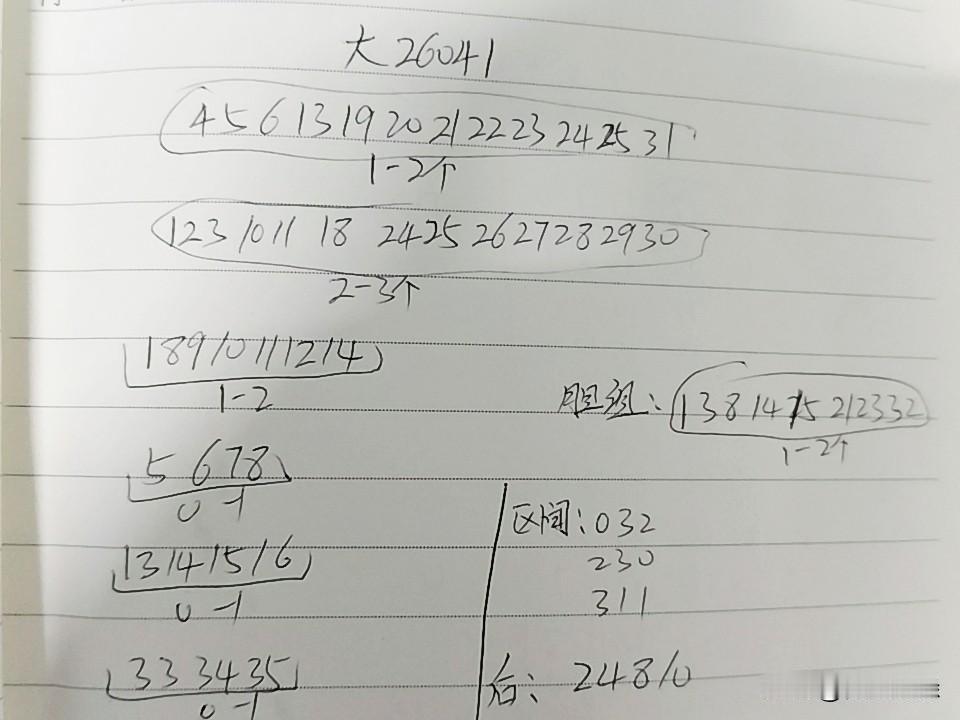 大26041
4 5 6 13 19 20 21 22 23 24 25 31
1-2个
1 2 3 10 11 18 24 25 26 27 28 29 30
2-3个
1 8 9 10 11 12 14
1-2
胆组: 1 3 8 14 15 21 23 32
1-2个
5 6 7 8
0-1
区间: 032
230
311
13 14 15 16
0-1
33 34 35
0-1
后: 2 4 8 10